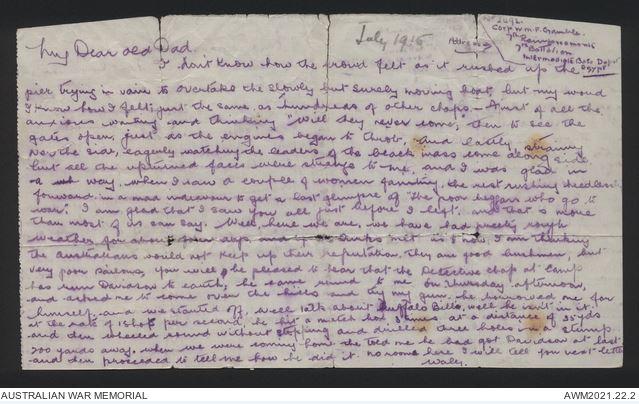 July 1915
No 2692.
Corp W.M.F. Gamble.
7th Reinforcements
7th Battalion
Intermediate Base Depot
Egypt
Address
My Dear old Dad.
I dont know how the crowd felt as it rushed up the
pier trying in vain to overtake the slowly but surely moving boat, but my word
I know how I felt, just the same as hundreds of other chaps. First of all the
anxious waiting and thinking "Will they never come," then to see the
gates open, just as the engines began to throb, and lastly, straining
over the side, eagerly watching the leaders of the black mass come along side
but all the upturned faces were strange to me, and I was glad in
a way, when I saw a couple of women fainting, the rest rushing heedlessly
forward in a mad endeavour to get a last glimpse of "the poor beggars who go to
war". I am glad that I saw you all just before I left. and that is more
than most of us can say. Well here we are, we have had pretty rough
weather for about four days and is now I am thinking
the Australians would not keep up their reputation. They are good bushmen, but
very poor sailors, you will be pleased to hear that the Detective chap at camp
has run Davidson to earth, he came round to me on Thursday afternoon,
and asked me to come over the hills and try my gun. he honoured me for
himself, and we started off, well talk about Buffalo Bills, well he isn't in it.
at the rate of 15 shots per second he hit a match box times at a distance of 35 yds
and then wheeled round without stopping and drilled three holes in a stump
200 yards away. when we were coming home he told me he had got Davidson at last
and then proceeded to tell me how he did it. no room here I will tell you next letter
Wally.
AUSTRALIAN WAR MEMORIAL
AWM2021.22.2